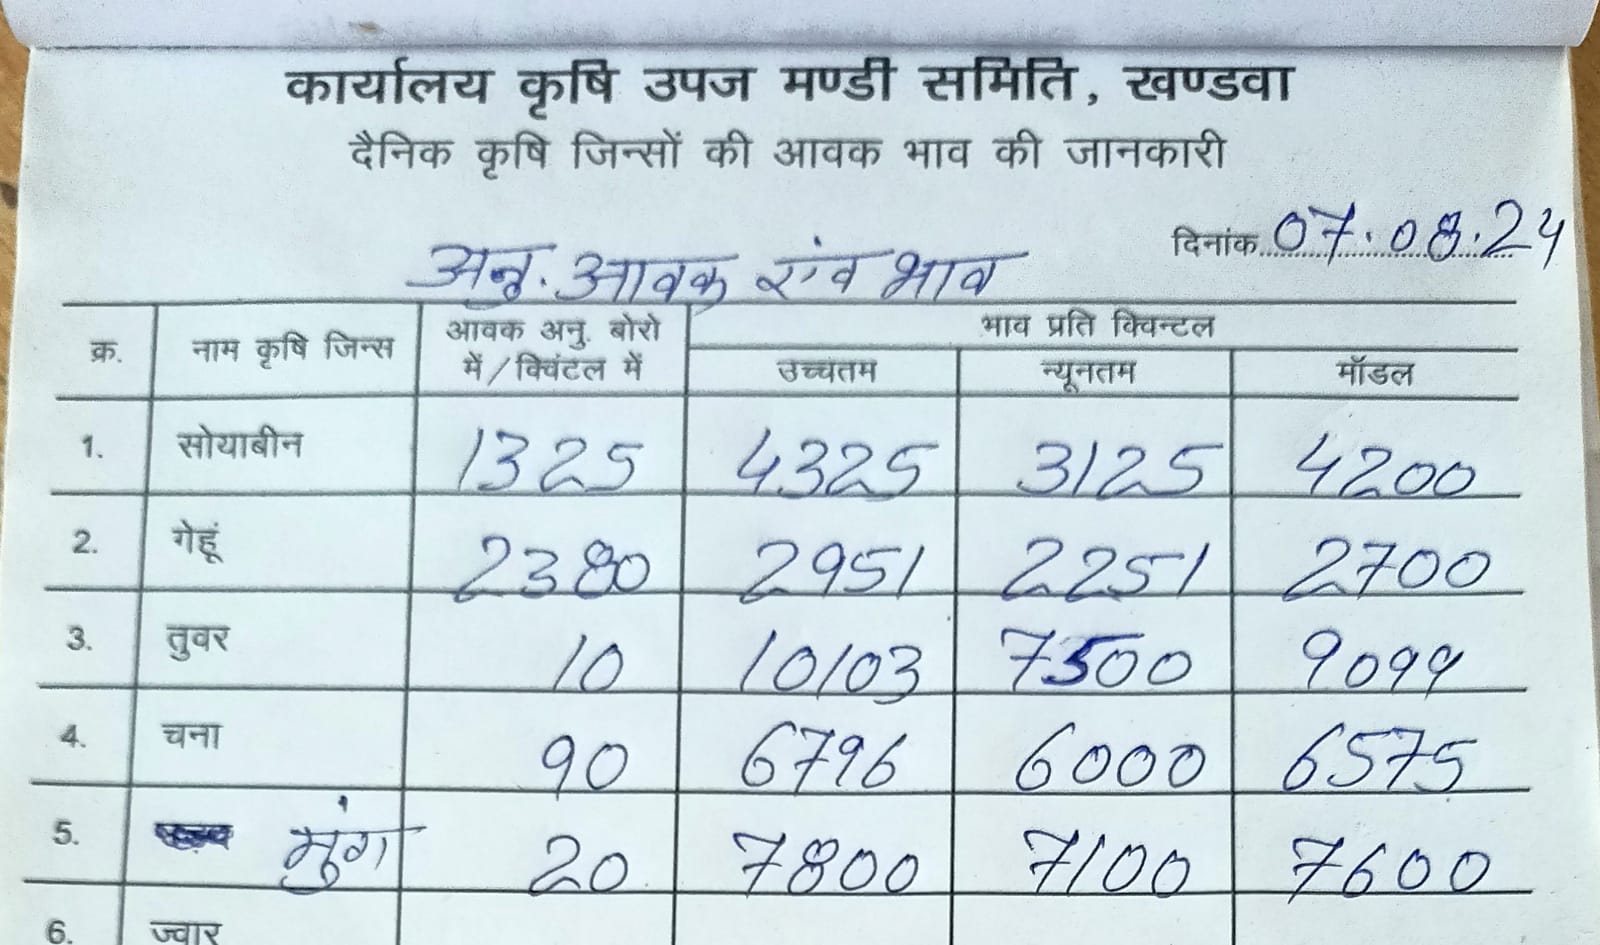 कार्यालय कृषि उपज मण्डी समिति, खण्डवा
दैनिक कृषि जिन्सों की आवक भाव की जानकारी
दिनांक 07.08.24
अनु. आवक एंव भाव
क्र. नाम कृषि जिन्स आवक अनु. बोरो में/क्विंटल में भाव प्रति क्विन्टल
उच्चतम न्यूनतम मॉडल
1. सोयाबीन 1325 4325 3125 4200
2. गेहूं 2380 2951 2251 2700
3. तुवर 10 10103 7500 9099
4. चना 90 6796 6000 6575
5. मुंग 20 7800 7100 7600
6. ज्वार